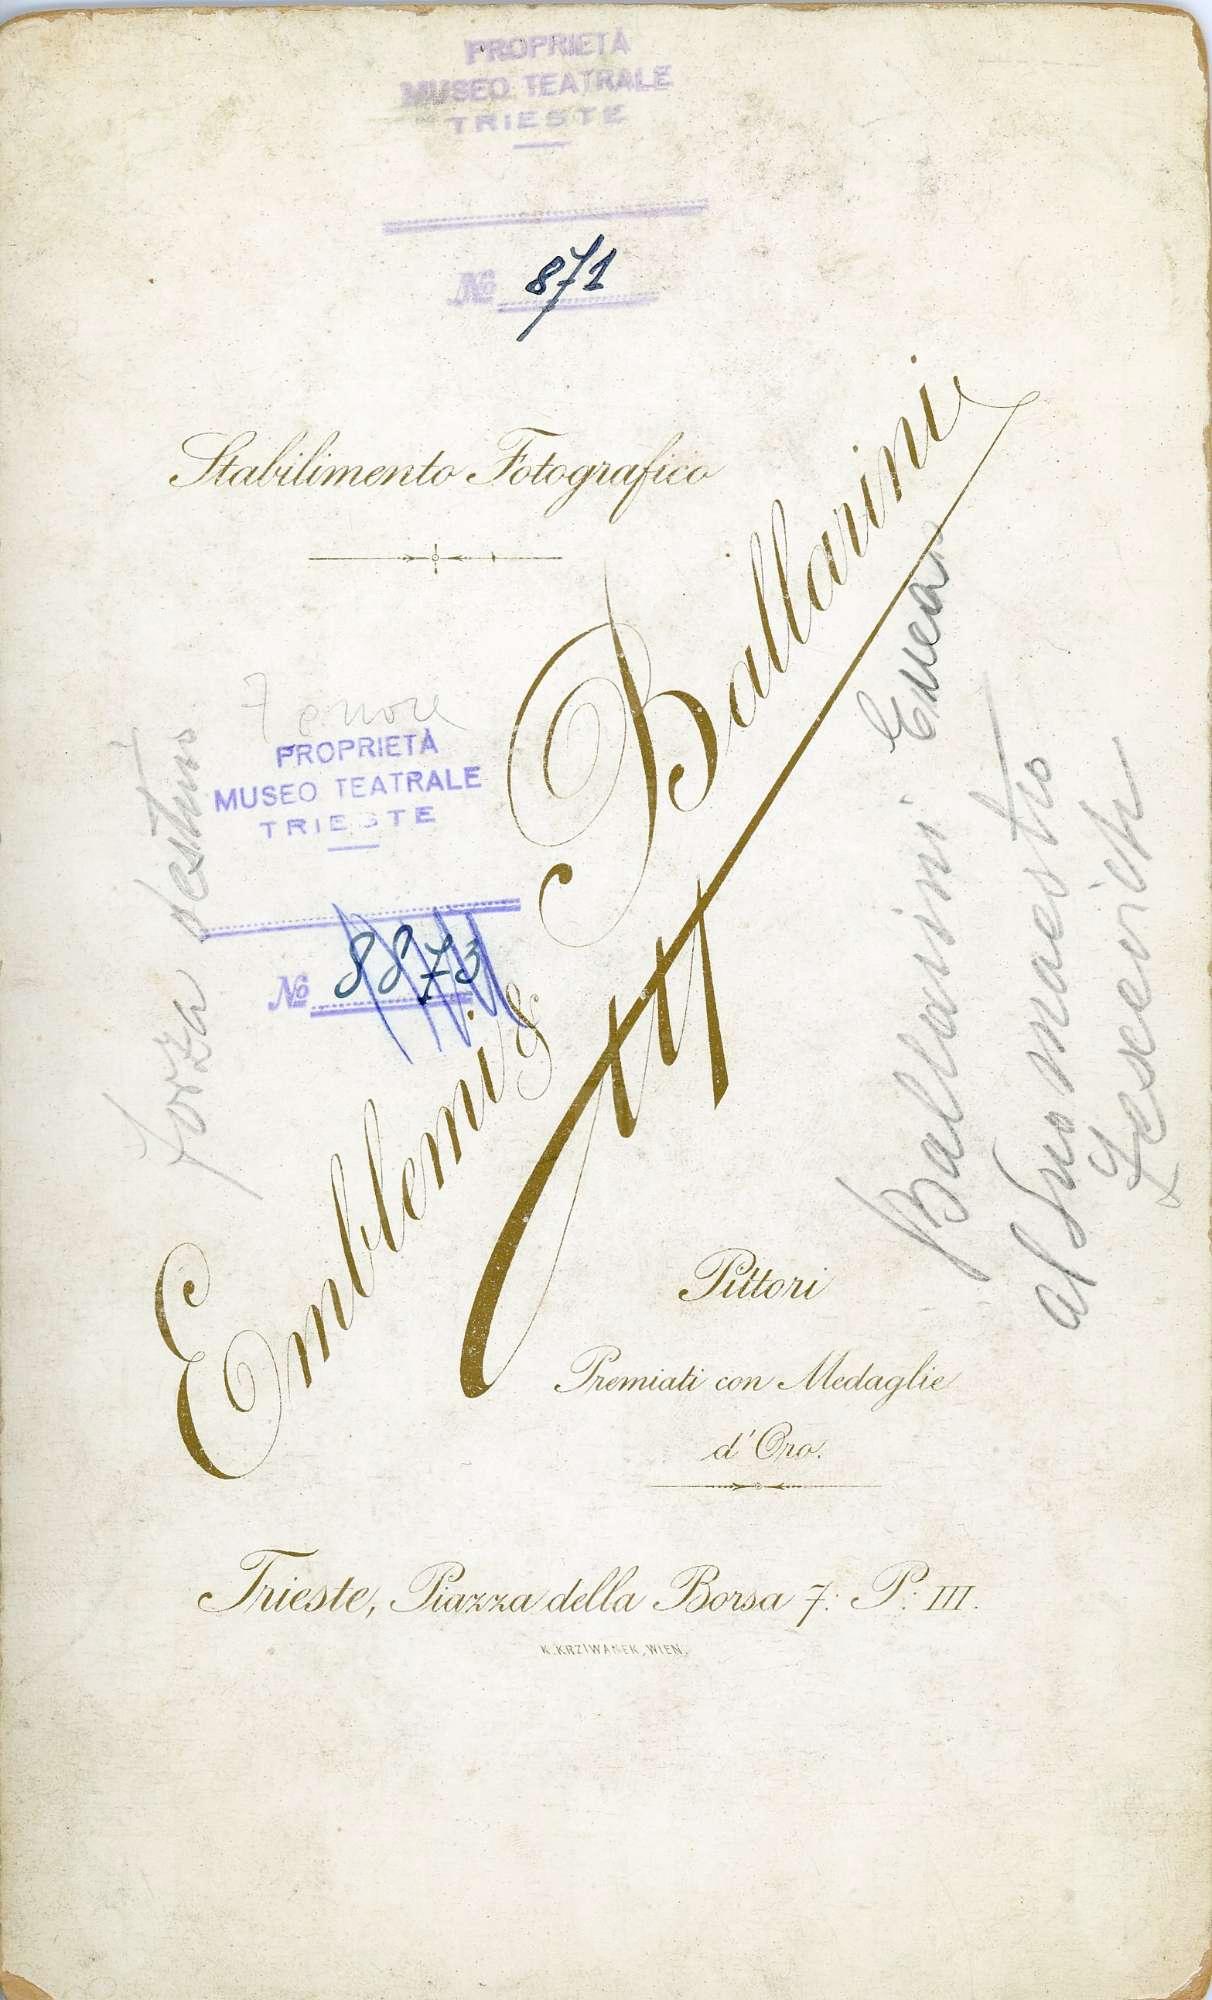 PROPRIETÀ
MUSEO TEATRALE
TRIESTE
No 871
Stabilimento Fotografico
Emblemi & Ballarini
Tenore
PROPRIETÀ
MUSEO TEATRALE
TRIESTE
No 8873
forza destino
Ballarini
al suo maestro
Pittori
Premiati con Medaglie
d'Oro.
Trieste, Piazza della Borsa 7: P: III.
K. KRZIWANEK, WIEN.